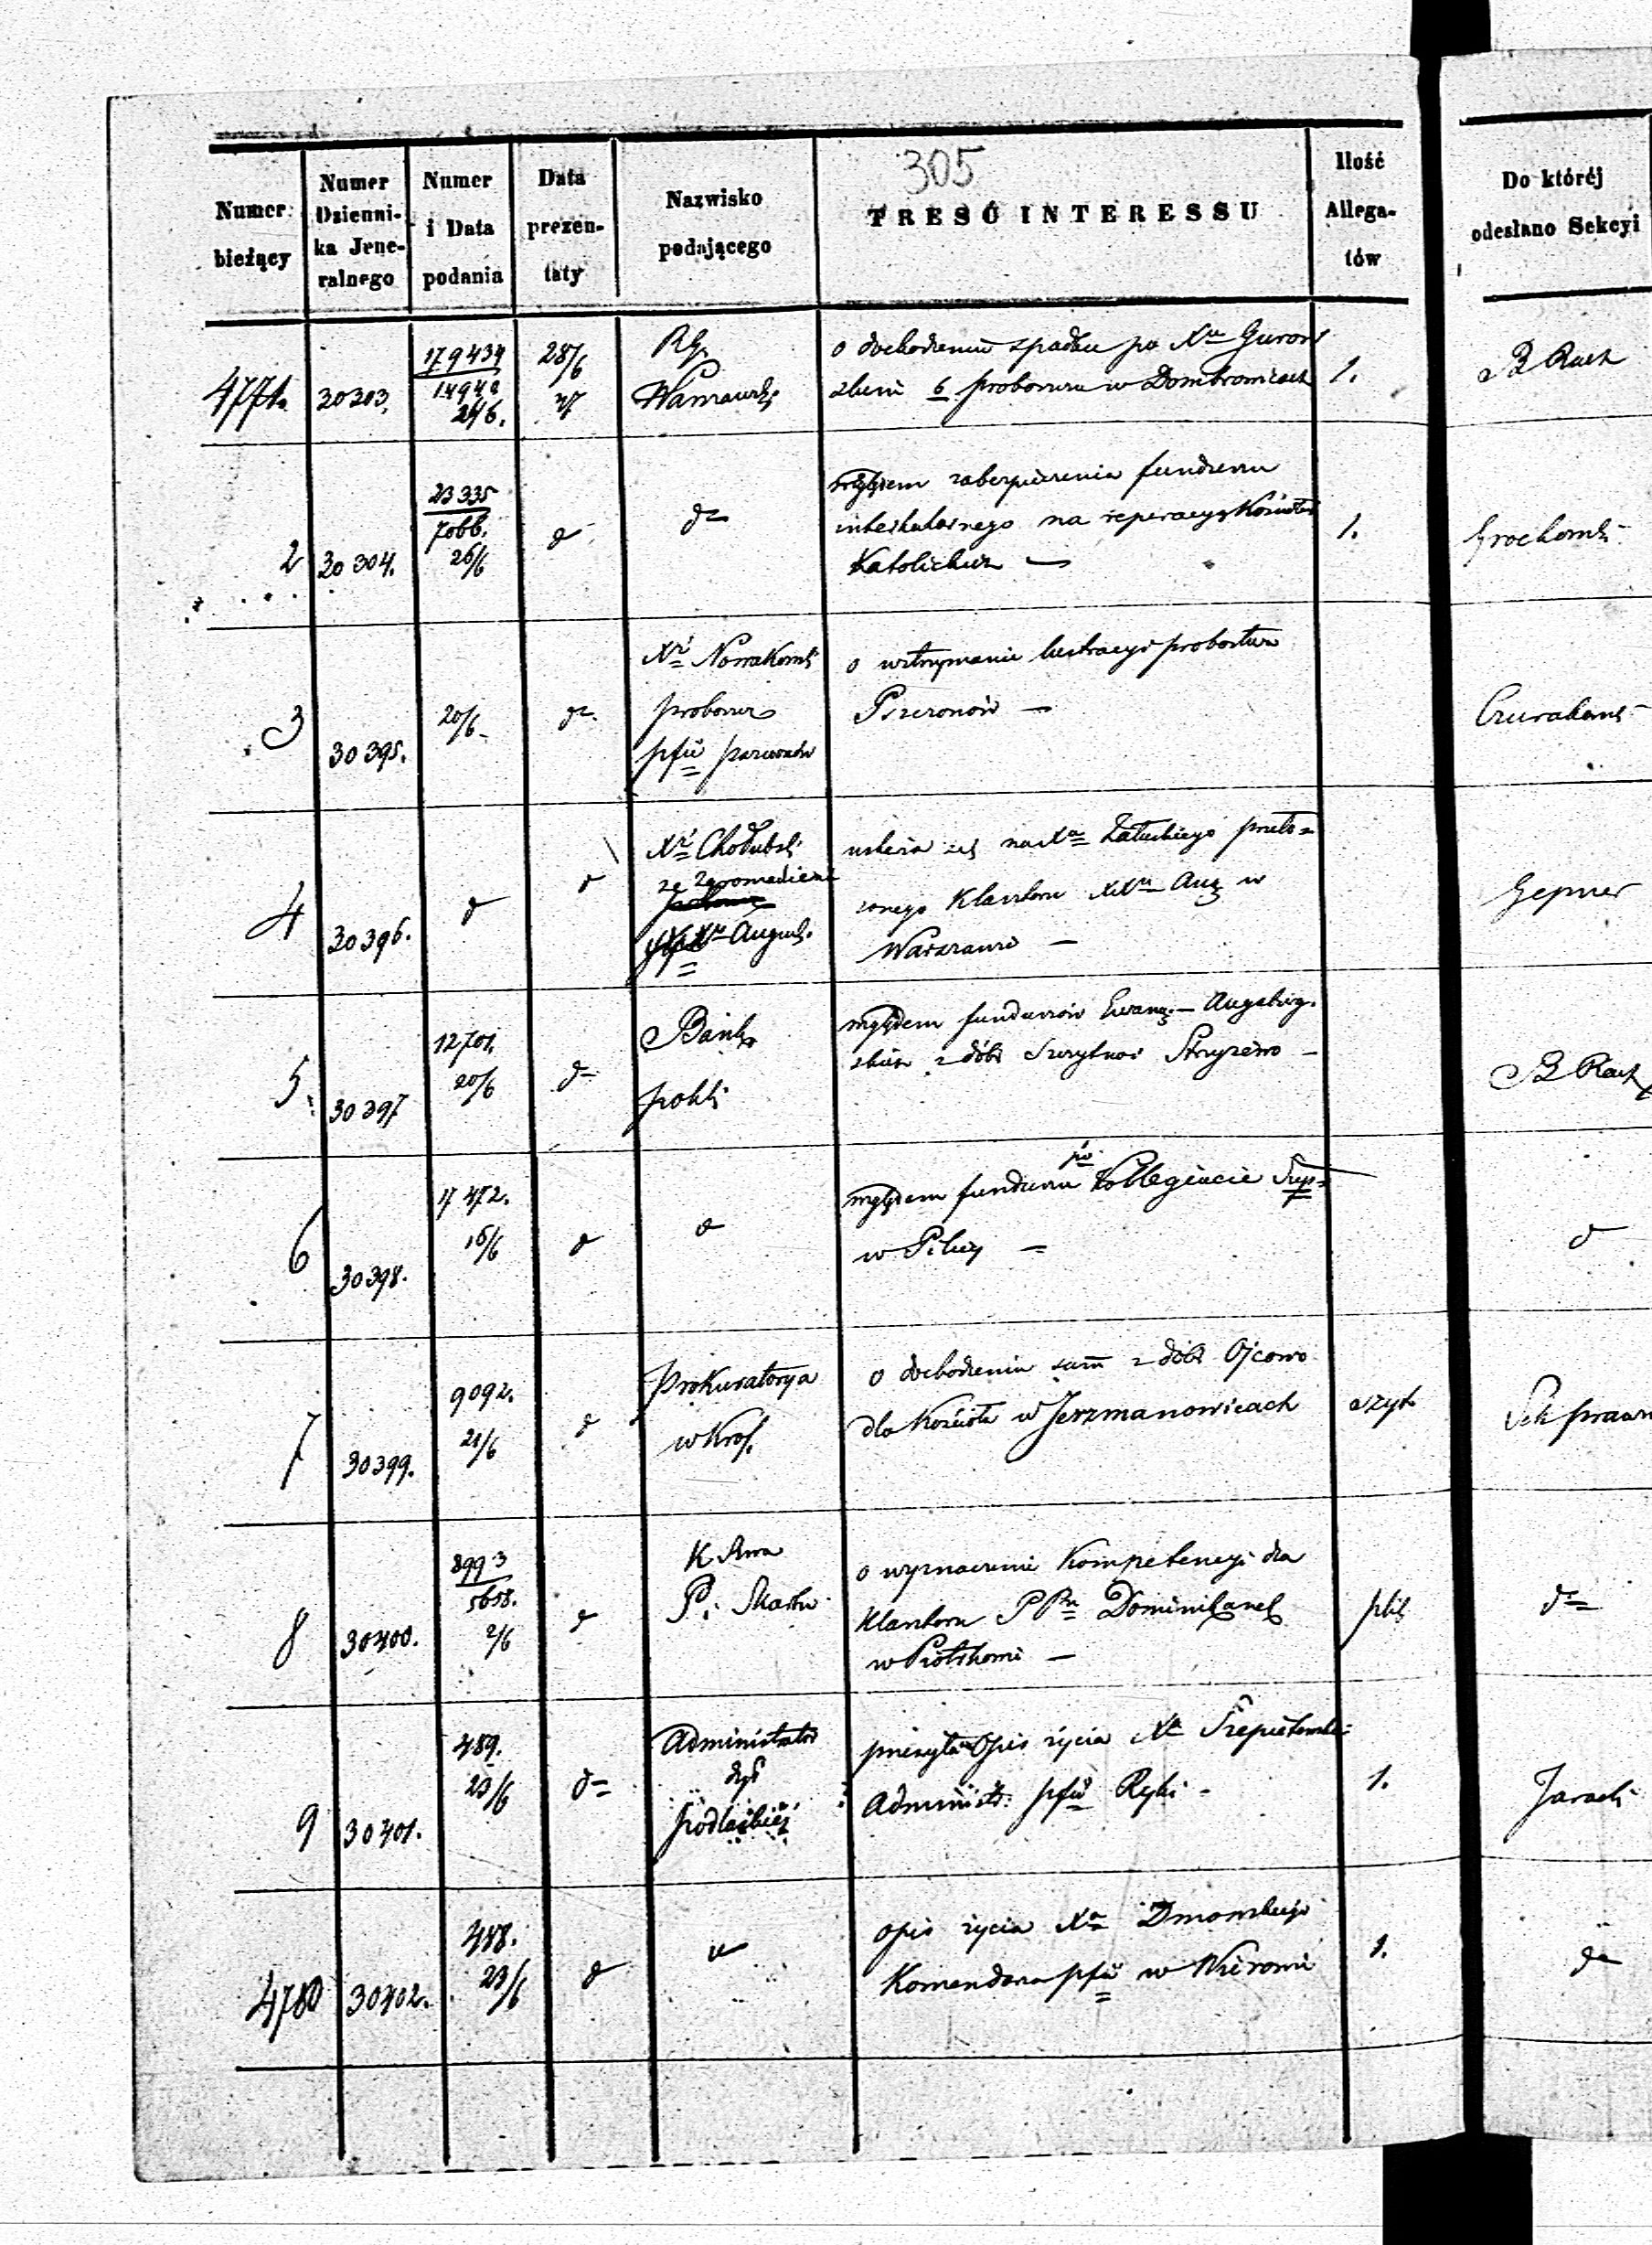 305
Numer bieżący
Numer Dzienni-
ka Jene-
ralnego
Numer i Data podania
Data prezen-
taty
Nazwisko podającego
TREŚĆ INTERESSU
Ilość Allega-
tów
Do któréj odesłano Sekcyi
4771.
30303.
179434
14942
24/6.
28/6
RG.
Warszawski
o dochodzeniu spadku po Xu Gurow
skim b. proboszczu w Dombrowicach
1.
2
30304.
23335
7066.
26/6
d
do
względem zabezpieczenia funduszu
na reperacyą Kościołów
Katolickich —
1.
Grochowski
3
30395.
20/6
do.
Xdz Nowakowski
proboszcz
pfii
o wstrzymanie lustracyi probostwa
Pszczonów —
4
30396.
d
d
Xdz Chołubski
ze Zgromadzenia
XXw August.
uskarża się na Xa Załuskiego przeło=
żonego Klasztoru XXw Aug w
Warszawie —
Gepner
5.
30397
12701.
20/6
do
Bank
polski
względem funduszów Ewang. — Augsburg.
skich z dóbr
6
30398.
17472.
16/6
d
d
względem funduszu po Kollegiacie
w Pilicy —
d
7
30399.
9092.
21/6
d
Prokuratorya
w Król.
o dochodzeniu summ z dóbr Ojcowo
dla Kościoła w Jerzmanowicach
aszyt.
8
30400.
8993
5658.
2/6
d
K. Rwa
P. i Skarbu
o wyznaczenie Kompetencyi dla
Klasztoru PPn Dominikanek
w Piotrkowie —
plik
do
9
30401.
489.
23/6
do
Administrator
dyec
podlaskiéj
przesyła Opis życia Xa Szepietowski
Administr. pfii Ryki -
1.
4780
30402.
488.
23/6
d
d
Opis życia Xa Dmowskiego
Komendarza pfii w
1.
do